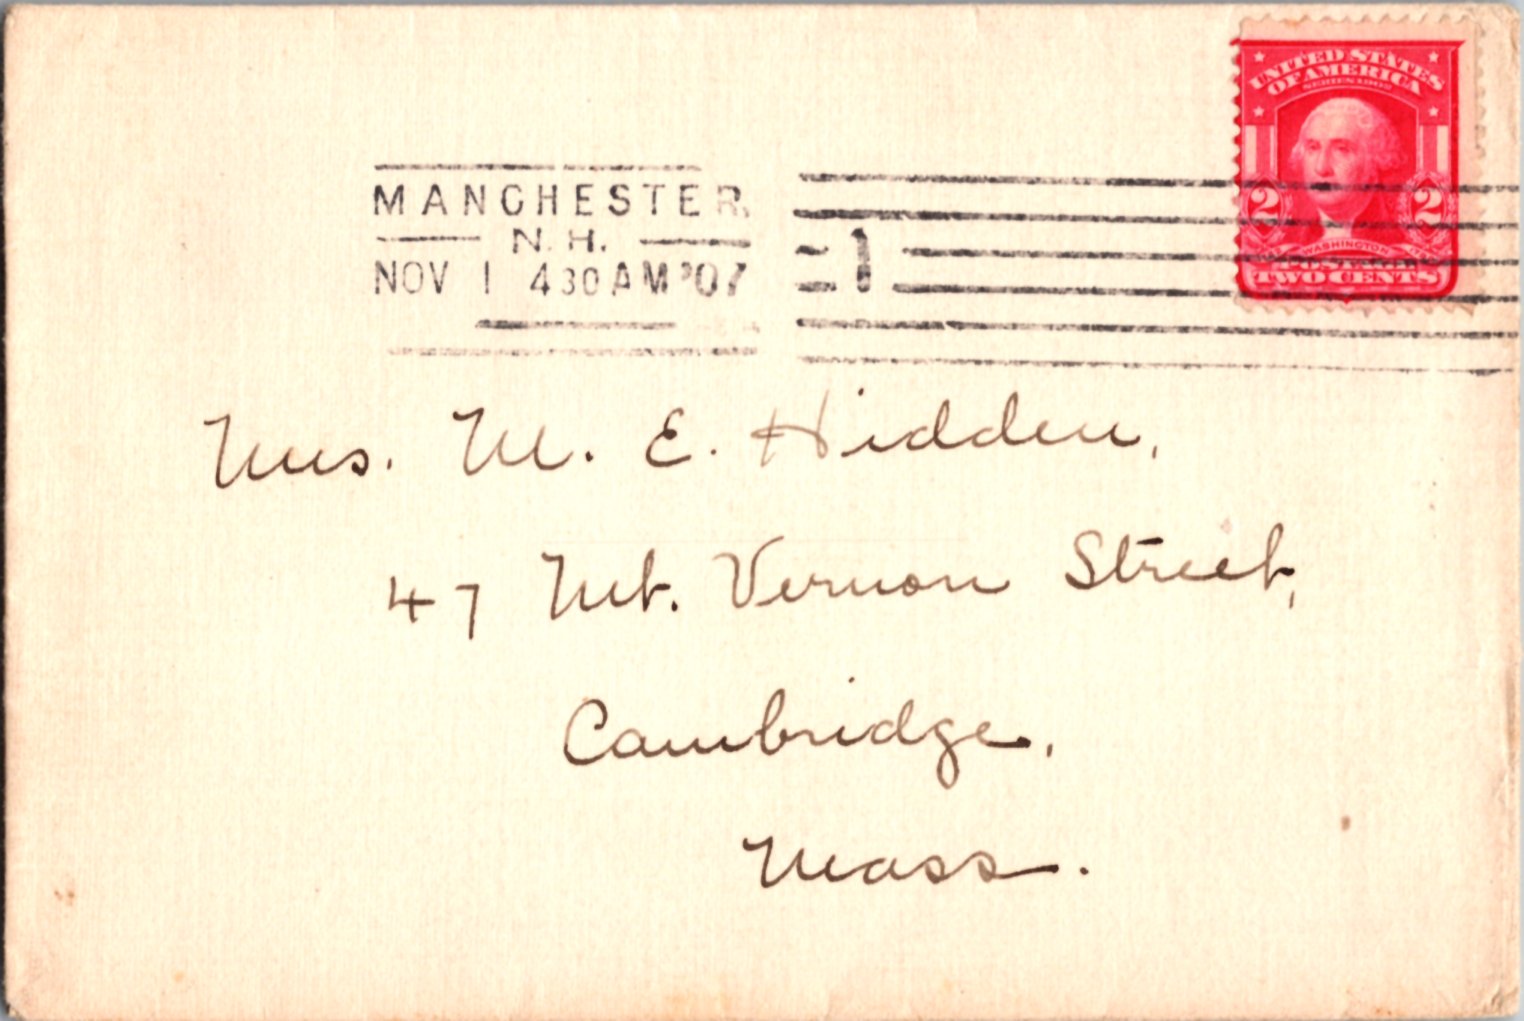 UNITED STATES
OF AMERICA
SERIES 1902
MANCHESTER,
N. H.
NOV 1 430 AM '07
1
2 2
WASHINGTON
POSTAGE
TWO CENTS
Mrs. M. E. Hidden,
47 Mt. Vernon Street,
Cambridge,
Mass.